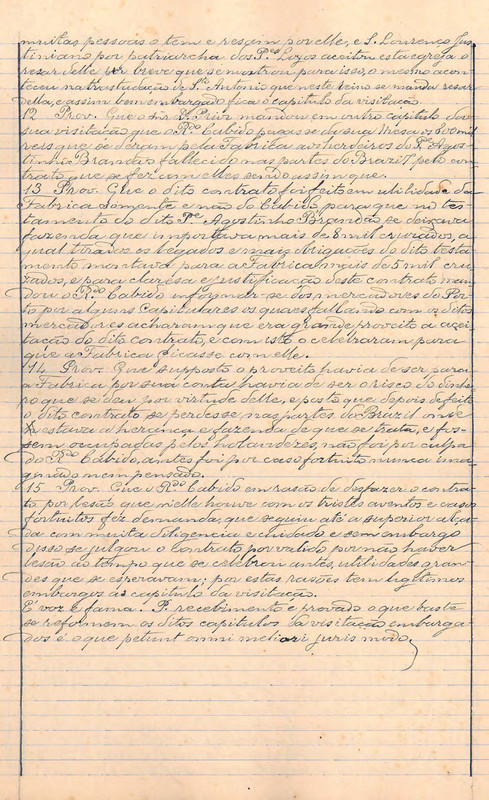 muitas pessoas o tem e resam por elle, e S. Lourenço Jus-
tiniano por patriarcha dos P.es Loyos aceitou esta egreja o
resar delle por breve que se mostrou para isso, o mesmo acon-
teceu na trasladação de S.to Antonio que neste reino se manda resar
della, e assim bem embargado fica o capitulo da visitação.
12 Prov. Que o Snr. D. Prior mandou em outro capitulo da
sua visitação que o R.do Cabido pagasse da sua Mesa os 600 mil
reis que se deram pela Fabrica aos herdeiros do P.e Agos-
tinho Brandão fallecido nas partes do Brazil, pelo con-
trato que se fez com elles sendo assim que.
13 Prov. Que o dito contrato foi feito em utilidade da
Fabrica somente e não do Cabido, para que no tes-
tamento do dito P.e Agostinho Brandão se deixava
fazenda que importava mais de 8 mil cruzados, a
qual tirados os legados e mais obrigações do dito testa-
mento montava para a Fabrica mais de 5 mil cru-
zados, e para claresa e justificação deste contrato man-
dou o R.do Cabido informar-se dos mercadores do Por-
to por alguns Capitulares os quaes fallando com os ditos
mercadores acharam que era grande proveito a acei-
tação do dito contrato, e com isto o celebraram para
que a Fabrica ficasse com elle.
14 Prov. Que supposto o proveito havia de ser para
a Fabrica por sua conta havia de ser o risco do dinhei-
ro que se deu por virtude delle, e posto que depois de feito
o dito contrato se perdesse nas partes do Brazil onde
estava a herança e fazenda de que se trata, e fos-
sem occupadas pelos holandezes, não foi por culpa
do R.do Cabido, antes foi por caso fortuito nunca ima-
ginado nem pensado.
15 Prov. Que o R.do Cabido em rasão de desfazer o contra-
to por lesão que nelle houve com os tristes aventos e casos
fortuitos fez demanda, que seguiu até a superior alça-
da com muita diligencia e cuidado e sem embargo
disso se julgou o contrato por valido por não haver
lesão ao tempo que se celebrou antes, utilidades gran-
des que se esperavam; por estas rasões tem legitimos
embargos ao capitulo da visitação.
É voz e fama. P. recebimento e provado o que baste
se reformem os ditos capitulos da visitação embarga-
dos é o que petunt omni meliori juris modo.